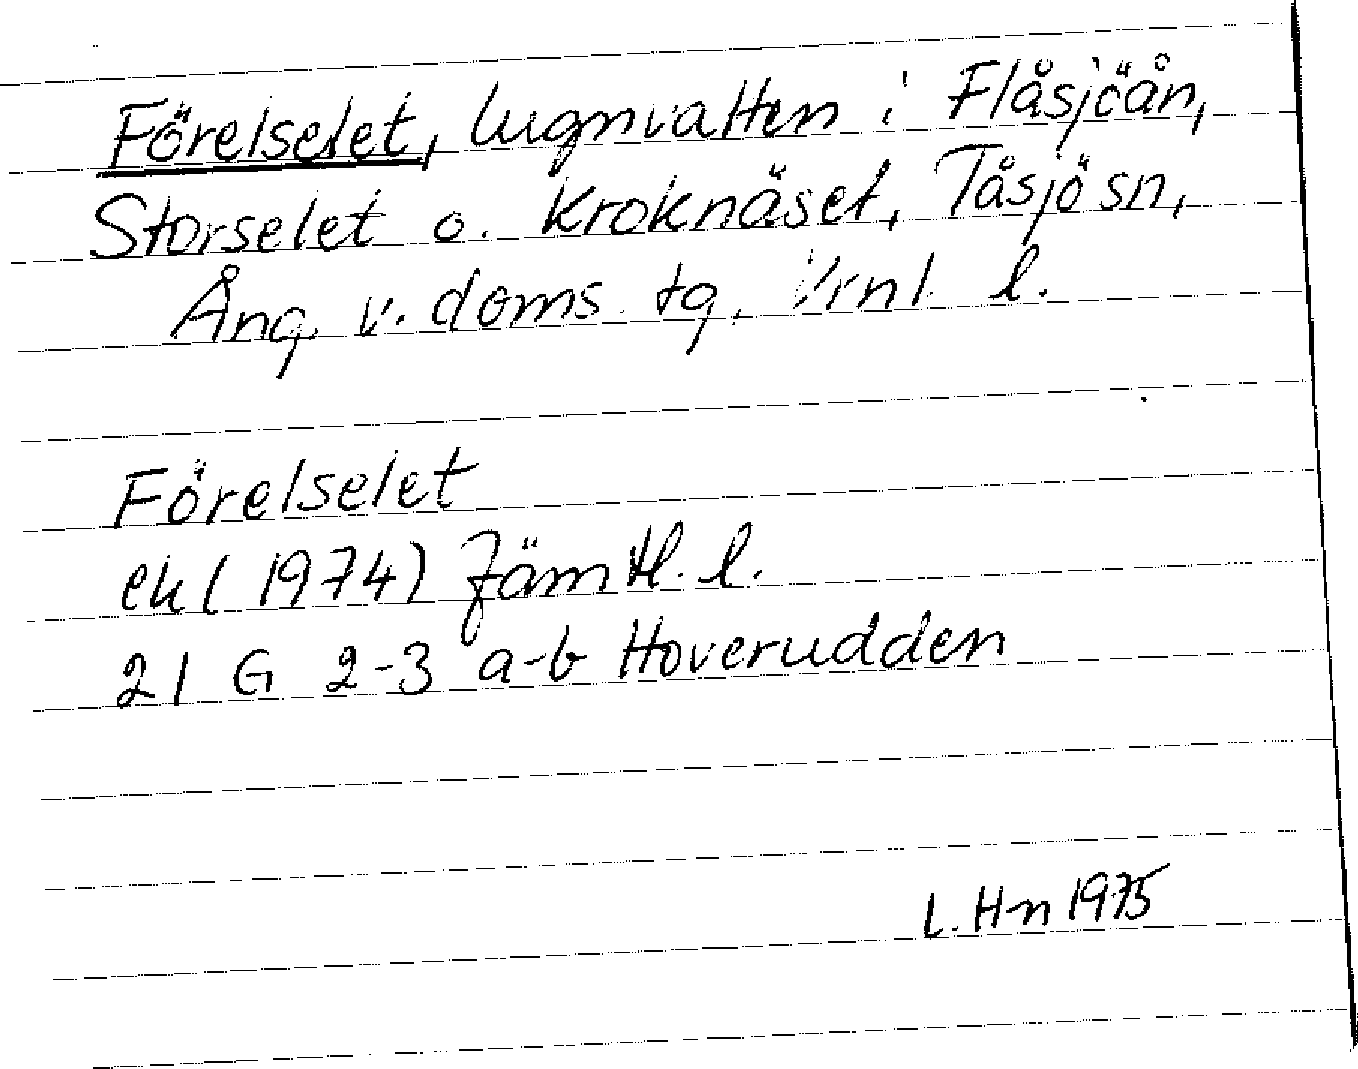 Förelselet, lugnvatten i Flåsjöån,
Storselet o. Kroknäset, Tåsjö sn,
Ång. v. doms. tg, Vrnl. l.
Förelselet
ek (1974) Jämtl. l.
21 G 2-3 a-b Hoverudden
L. H-n 1975